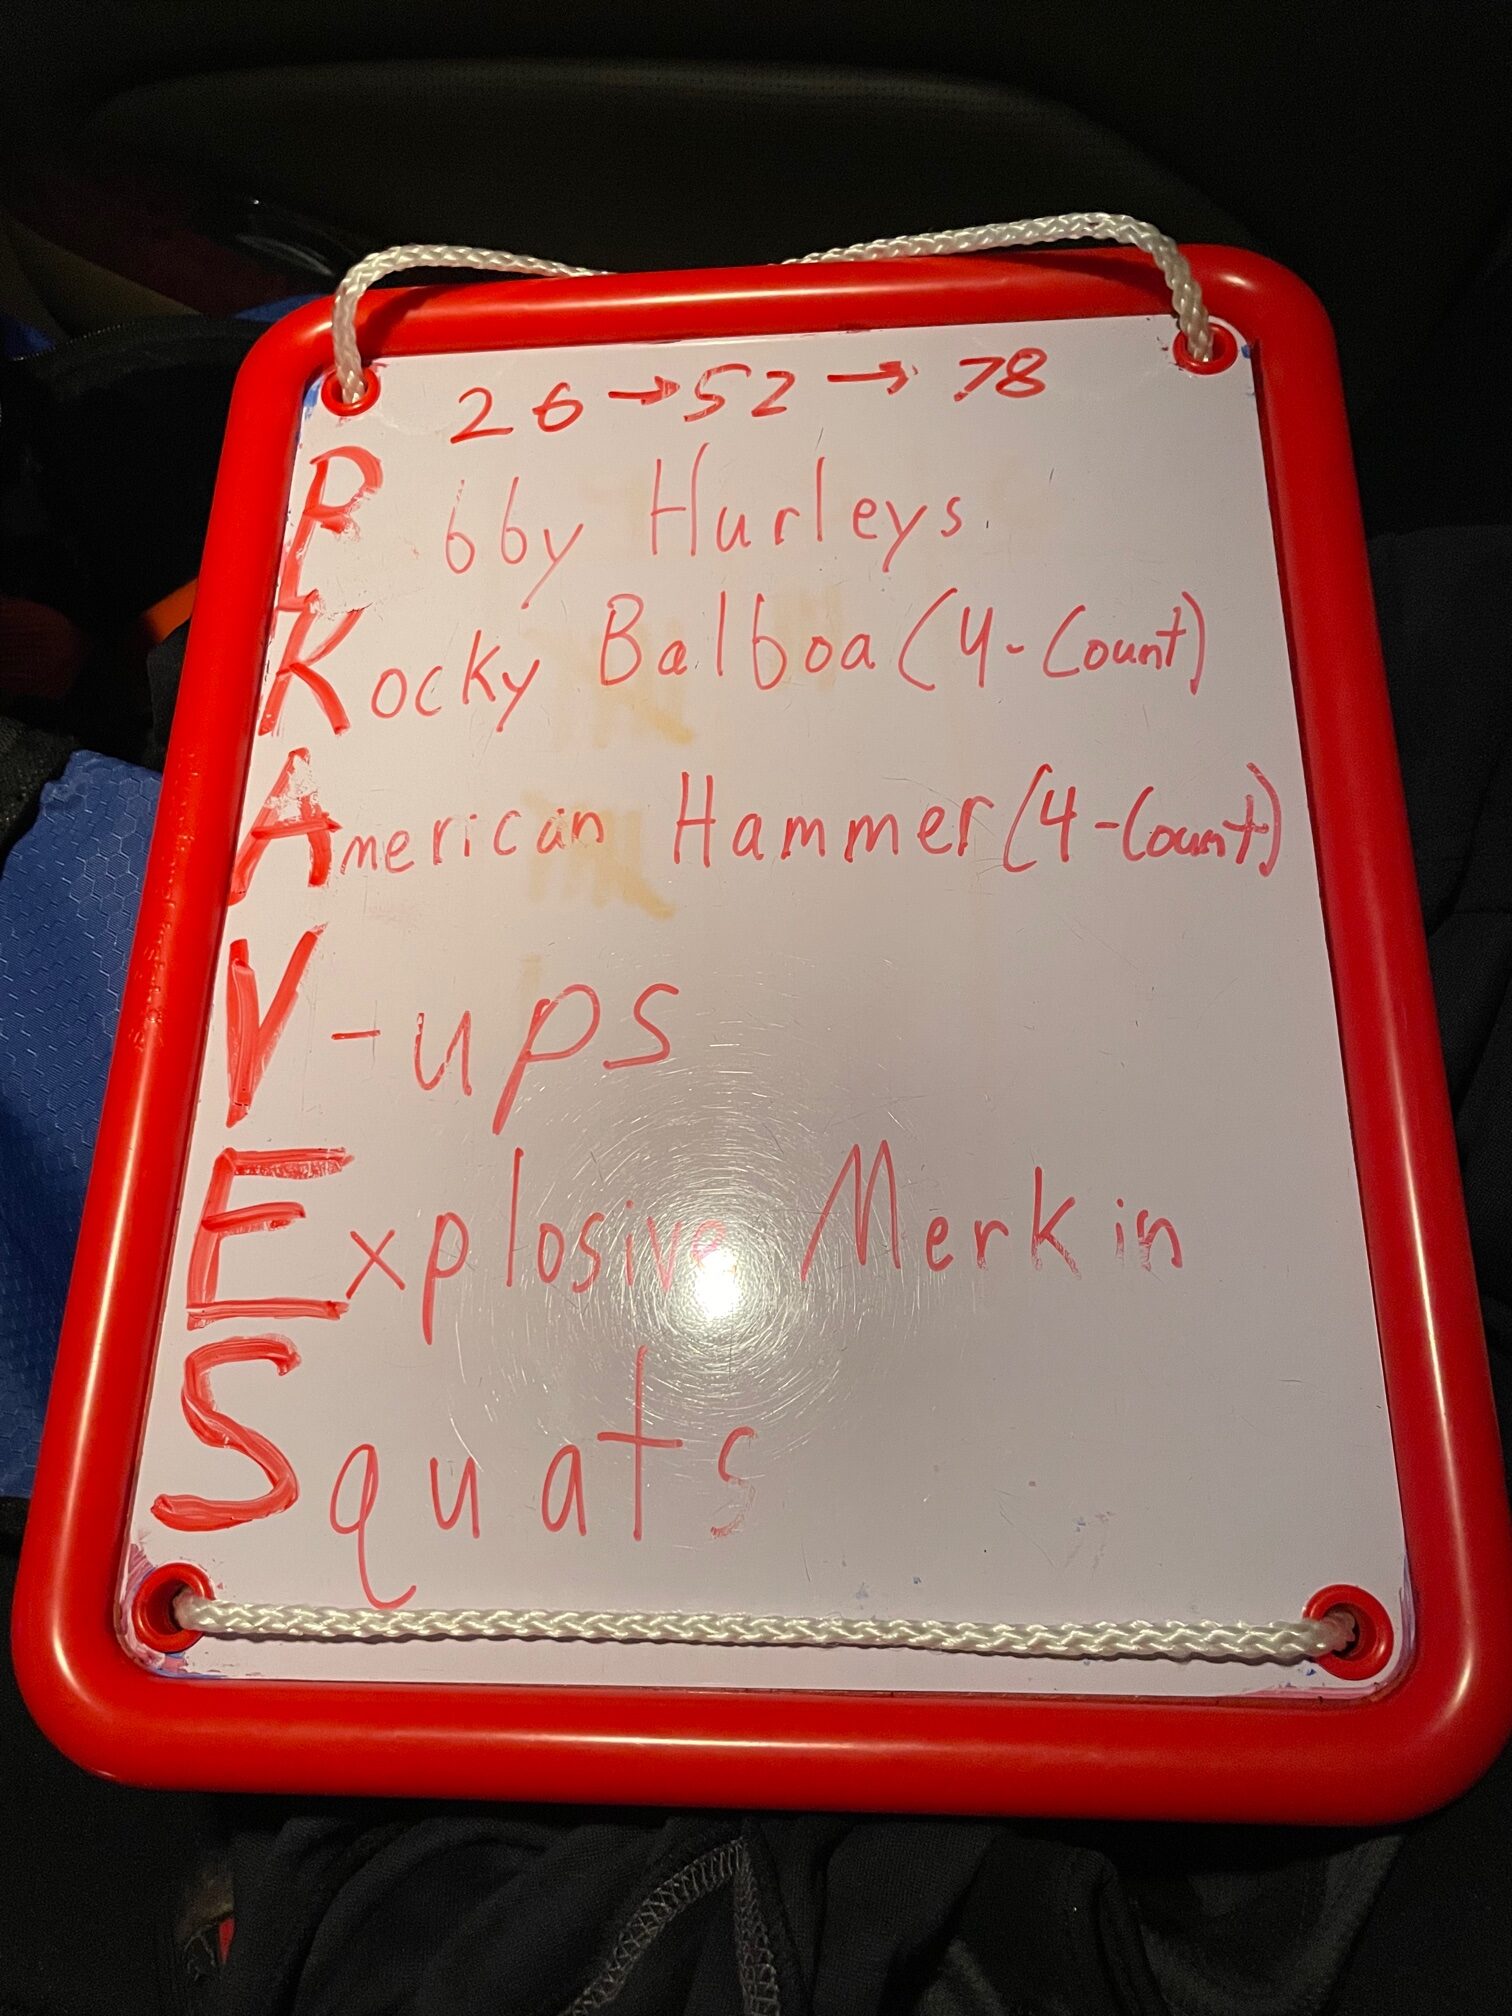 26 → 52 → 78
P bby Hurleys
Kocky Balboa (4-Count)
American Hammer (4-Count)
V-ups
Explosive Merkin
Squats